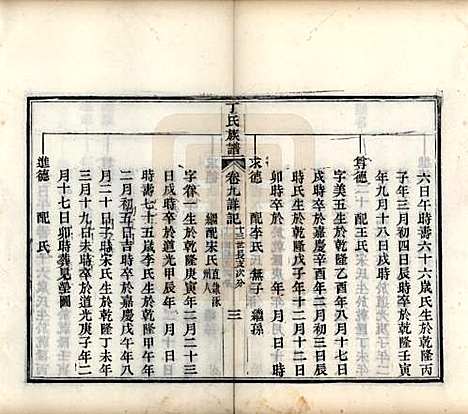 六日午時壽六十六歲氏生於乾隆丙
子年三月初四日辰時卒於乾隆壬寅
年九月十八日戌時
尊德 配王氏
字美五生於乾隆乙酉年八月十七日
戌時卒於嘉慶辛酉年二月初三日辰
時氏生於乾隆 年 月 日
卯時卒於 年 月 日
求德 配李氏 無子 繼孫
丁氏族譜
卷九詳記
三
繼配宋氏
字眷一生於乾隆庚寅年二月二十三
日戌時卒於道光甲辰年 月十日
時壽七十五歲李氏生於乾隆甲午年
二月初五日吉時卒於嘉慶戊午年五
月二十日子時宋氏生於乾隆丁未年
三月十九日未時卒於道光庚子年二
月十七日卯時葬見塋圖
進德 配 氏